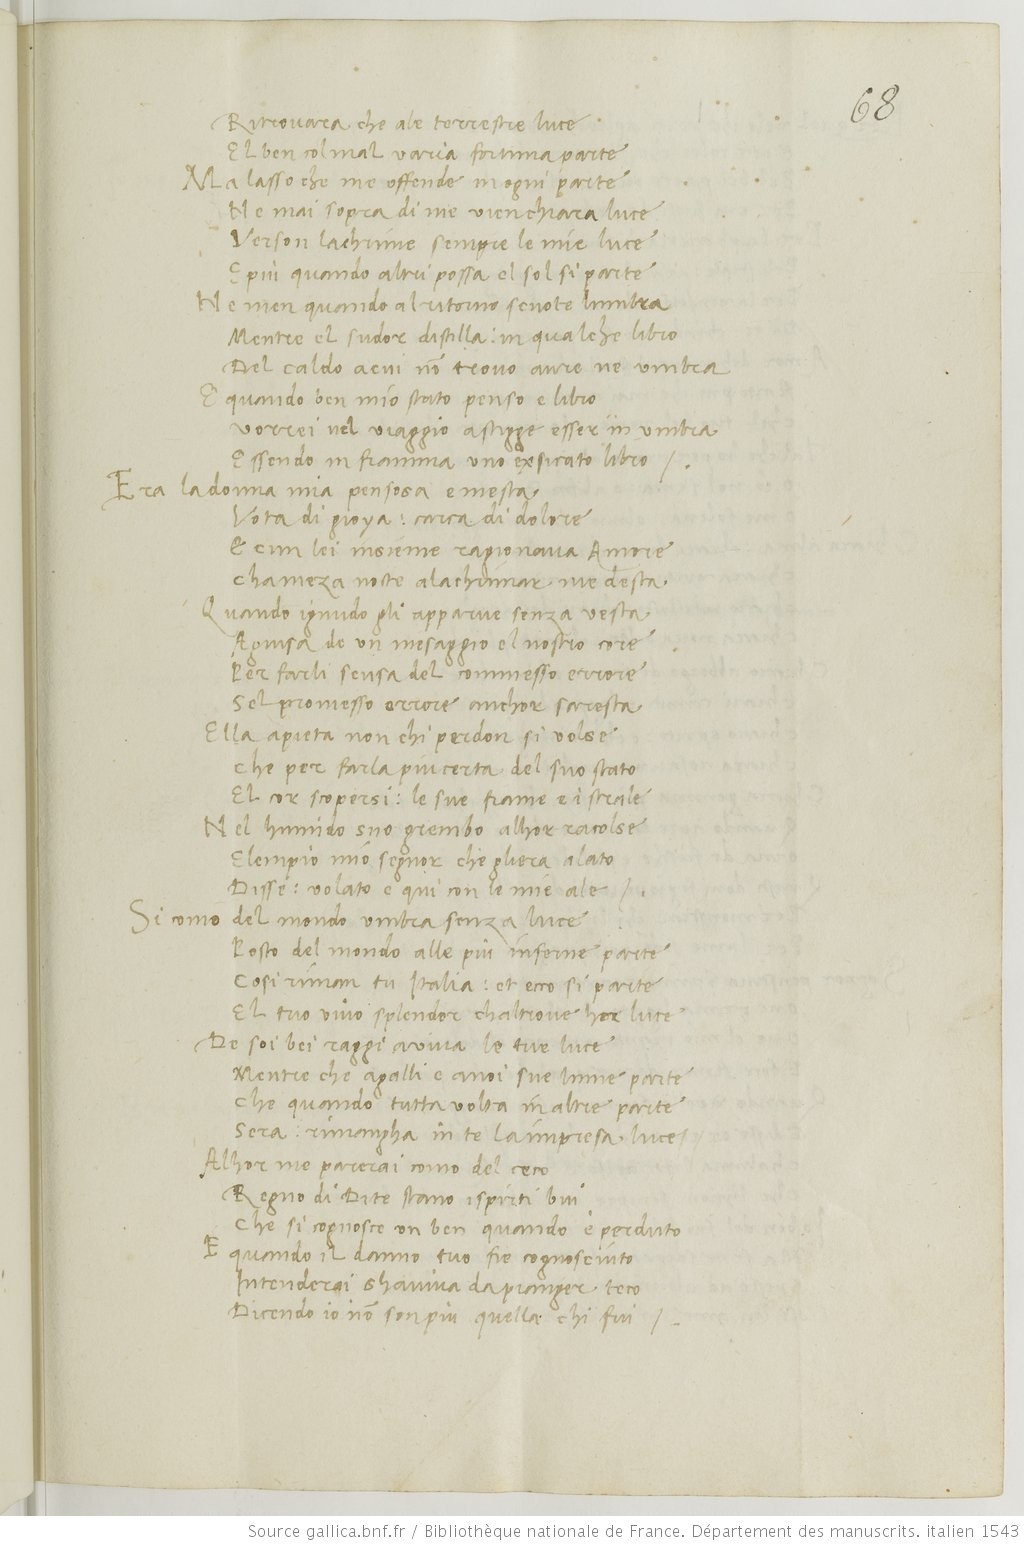 68
Ritrovara che ale terrestre luce
El ben col mal varia fortuna parte
Ma lasso che me offende in ogni parte
Ne mai sopra di me vien chiara luce
Verson lachrime sempre le mie luce
E più quando altri possa el sol si parte
Ne men quando al ritorno scuote lumbra
Mentre el sudor distilla: in qualche libro
Del caldo a cui nõ trovo aure ne umbra
E quando ben mio stato penso e libro
vorrei nel viaggio a stigge esser in umbra
Essendo in fiamma uno exsicato libro /.
Era la donna mia pensosa e mesta
Vota di gioya: carca di dolore
E cun lei insieme ragionava Amore
Chameza nocte a lachrimar me desta
Quando ignudo gli apparve senza vesta
A guisa de un mesaggio el nostro core
Per farli scusa del commesso errore
Sel promesso errore anchor saresta
Ella a pieta non chi perdon si volse
che per farla piu certa del suo stato
El cor scopersi: le sue fiame e i strale
Nel humido suo grembo alhor racolse
Elempio mio segnor che gliera alato
Disse: volato e qui con le mie ale /.
Si como del mondo umbra senza luce
Posto del mondo alle più inferne parte
Cosi riman tu Italia: et ecco si parte
El tuo vivo splendor chaltrove hor luce
De soi bei raggi aviva le tue luce
Mentre che a galli e a noi sue lume parte
Che quando tutta volta in altre parte
Sera: rimangha in te la impresa luce
Alhor me parerai como del ceco
Regno di Dite stano i spirti bui
Che si cognosce un ben quando è perduto
E quando il danno tuo fie cognosciuto
Intenderai shaviva da pianger teco
Dicendo io nõ son piu quella chi fui /.
Source gallica.bnf.fr / Bibliothèque nationale de France. Département des manuscrits. italien 1543